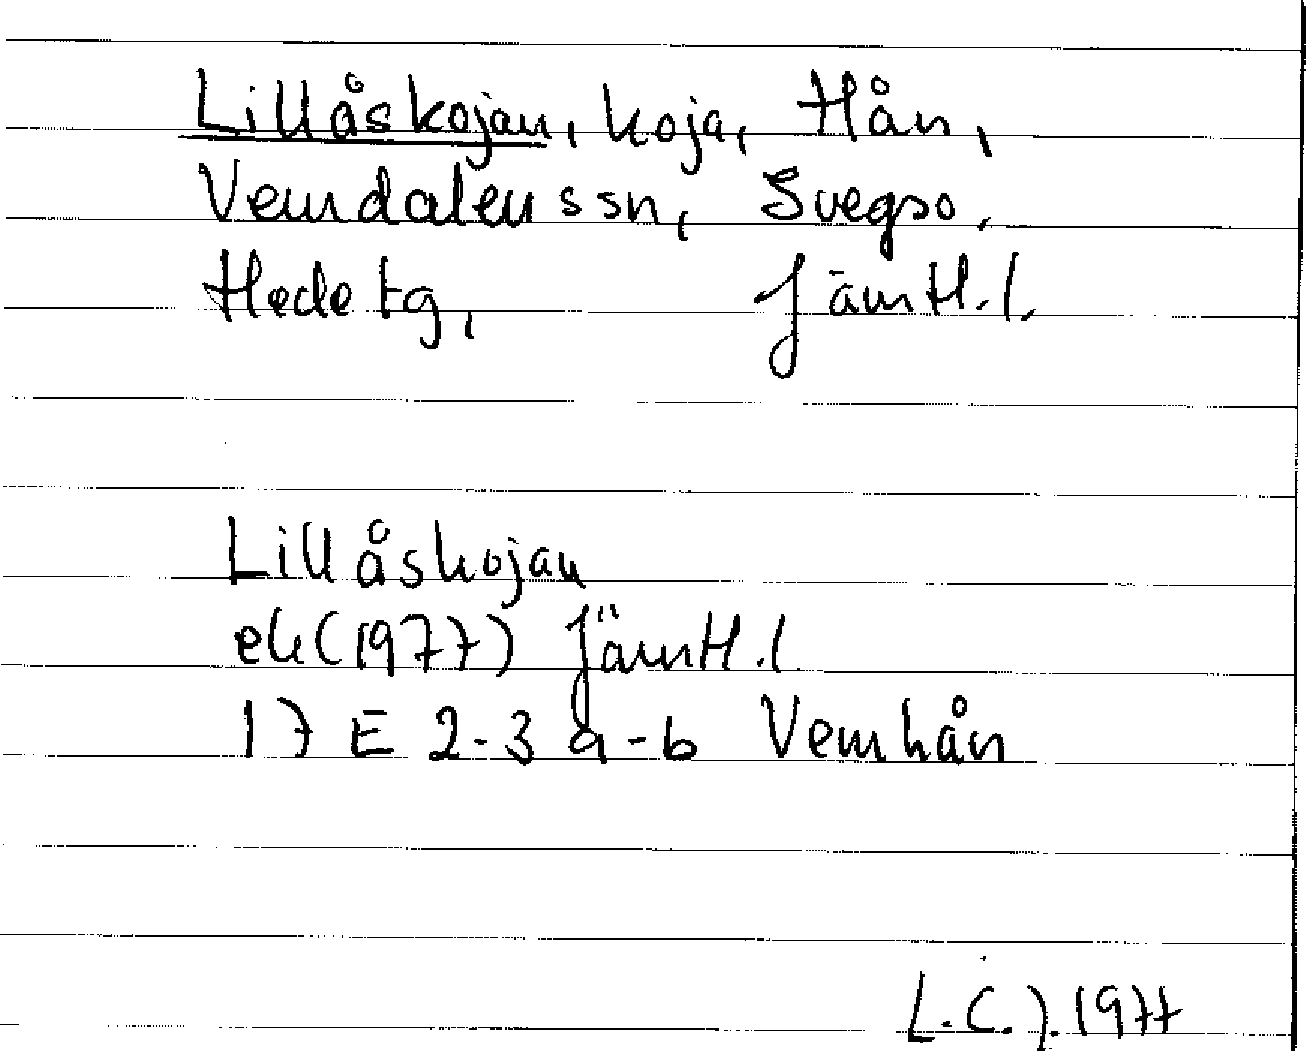 Lillåskojan, koja, Hån,
Vemdalens sn, Svegs o.
Hede tg, Jämtl. l.
Lillåskojan
ek (1977) Jämtl. l.
17 E 2-3 a-b Vemhån
L. C. J. 1977